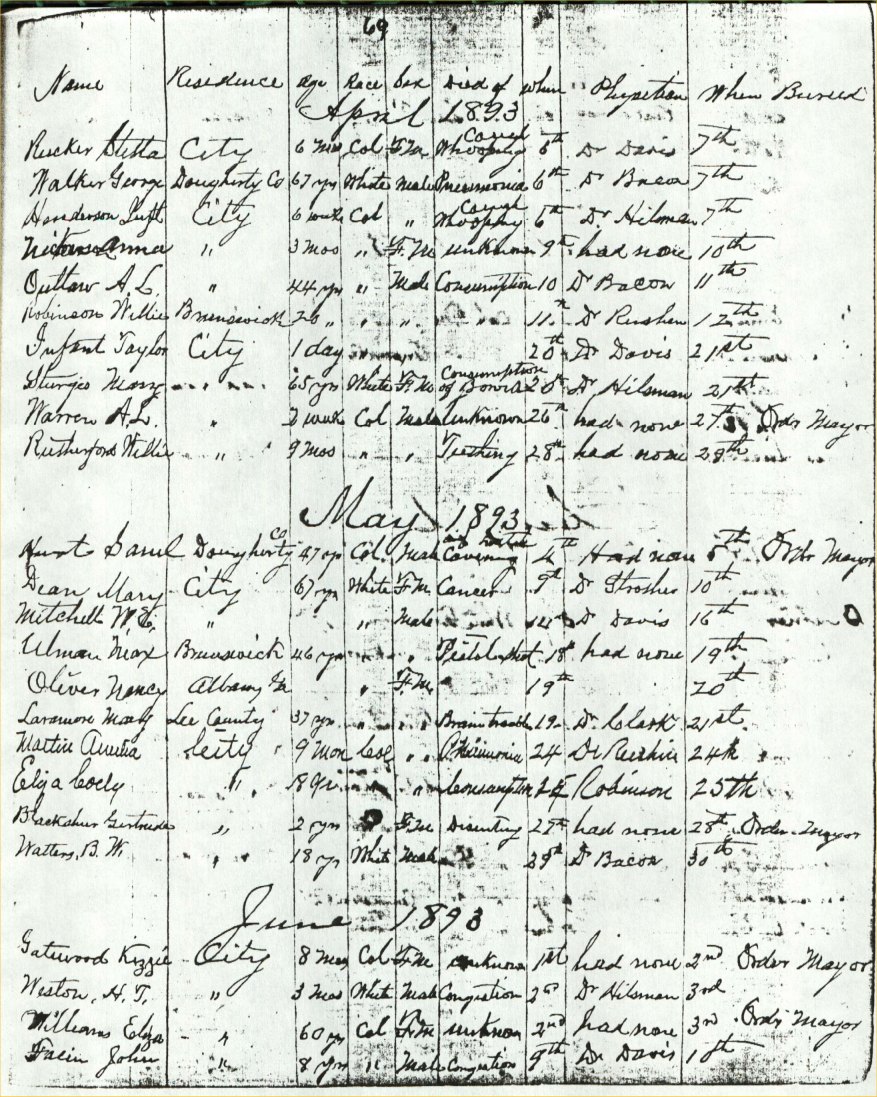 69
Name Residence age Race Sex Died of when Physition When Buried
April 1893
Rucker Stella City 6 Mos Col F.M Whooping Cough 6th Dr Davis 7th
Walker George Dougherty Co 67 yrs White Male Pneumonia 6th Dr Bacon 7th
Henderson Inft City 6 week Col " Whooping Cough 6th Dr. Hilsman 7th
Anna " 3 Mos " F.M unknown 9th had none 10th
Outlaw A. L. " 44 yrs " Male Consumption 10 Dr Bacon 11th
Robinson Willie Brunswick 20 " " " " 11th Dr Rushen 12th
Infant Taylor City 1 day " " 20th Dr Davis 21st
Sturgis Mary " " 65 yrs White F.M Consumption of 20th Dr Hilsman 21st
Warren A.L. " 2 week Col Male Unknown 26th had none 27th Ordr Mayor
Rutherford Willie " 9 Mos " " Teething 28th had none 29th
May 1893
Hurt Saml Dougherty Co 47 yrs Col Male 4th Had none 5th Ordr Mayor
Dean Mary City 67 yrs White F.M Cancer 9th Dr Strosher 10th
Mitchell W.E. " " Male Dr Davis 16th
Ulman Max Brunswick 46 yrs " " Pistol shot 18th had none 19th
Oliver Nancy Albany Ga " F.M 19th 20th
Laramore Mary Lee County 37 yrs " " Brain trouble 19 Dr. Clark 21st
Martin Amelia City 9 Mon Col " 24 Dr Rushin 24th
Eliza Cody " " " Consumption Robinson 25th
Blackshur Gertrude " 2 yrs F.M Disentry 27th had none 28th Order Mayor
Watters, B. W. " 18 yrs White Male 29th Dr Bacon 30th
June 1893
Gatewood Kizzie City 8 Mos Col F.M unknown 1st had none 2nd Order Mayor
Weston, H. T. " 3 Mos White Male Congestion Dr Hilsman 3rd
Williams Eliza " 60 yrs Col F.M unknown 2nd had none 3rd Ordr Mayor
John " 8 yrs " Male Congestion 9th Dr Davis